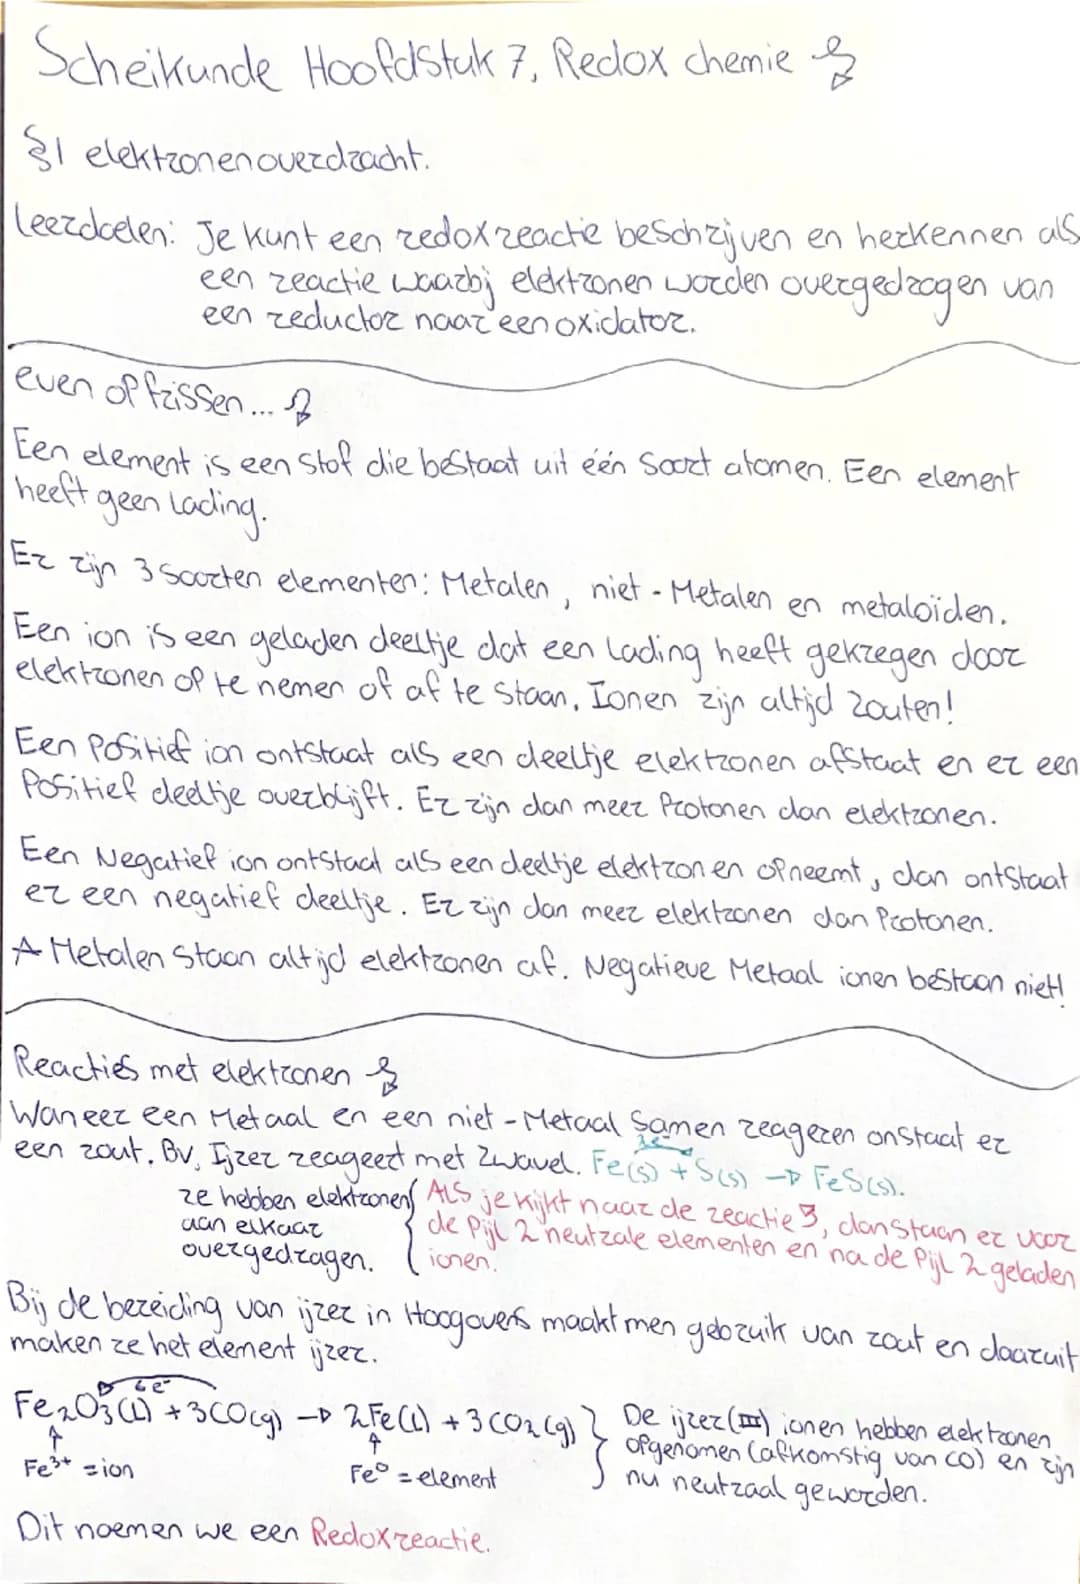 Scheikunde Hoofdstuk 7, Redox chemie
§1 elektronenoverdracht.
leerdoelen: Je kunt een redoxreactie beschrijven en herkennen als
een reactie waarbij elektronen worden overgedragen van
een reductor naar een oxidator.
even opfrissen...
Een element is een stof die bestaat uit één soort atomen. Een element
heeft geen lading.
Er zijn 3 soorten elementen: Metalen, niet-Metalen en metaloïden.
Een ion is een geladen deeltje dat een lading heeft gekregen door
elektronen op te nemen of af te staan. Ionen zijn altijd zouten!
Een Positief ion ontstaat als een deeltje elektronen afstaat en er een
Positief deeltje overblijft. Er zijn dan meer Protonen dan elektronen.
Een Negatief ion ontstaat als een deeltje elektronen opneemt, dan ontstaat
er een negatief deeltje. Er zijn dan meer elektronen dan Protonen.
Metalen staan altijd elektronen af. Negatieve Metaal ionen bestaan niet!
Reacties met elektronen
Waneer een Metaal en een niet-Metaal samen reageren onstaat er
een zout. Bv. Ijzer reageert met Zwavel. Fe(s) + S(s) → FeS(s).
ze hebben elektronen
aan elkaar
overgedragen.
Als je kijkt naar de reactie, dan staan er voor
de Pijl 2 neutrale elementen en na de Pijl 2 geladen
ionen.
Bij de bereiding van ijzer in Hoogovens maakt men gebruik van zout en daaruit
maken ze het element ijzer.
6e⁻
Fe₂O₃(l) + 3CO(g) → 2Fe(l) + 3CO₂(g)
Fe³⁺ = ion
Fe⁰ = element
De ijzer(III) ionen hebben elektronen
opgenomen (afkomstig van CO) en zijn
nu neutraal geworden.
Dit noemen we een Redoxreactie.